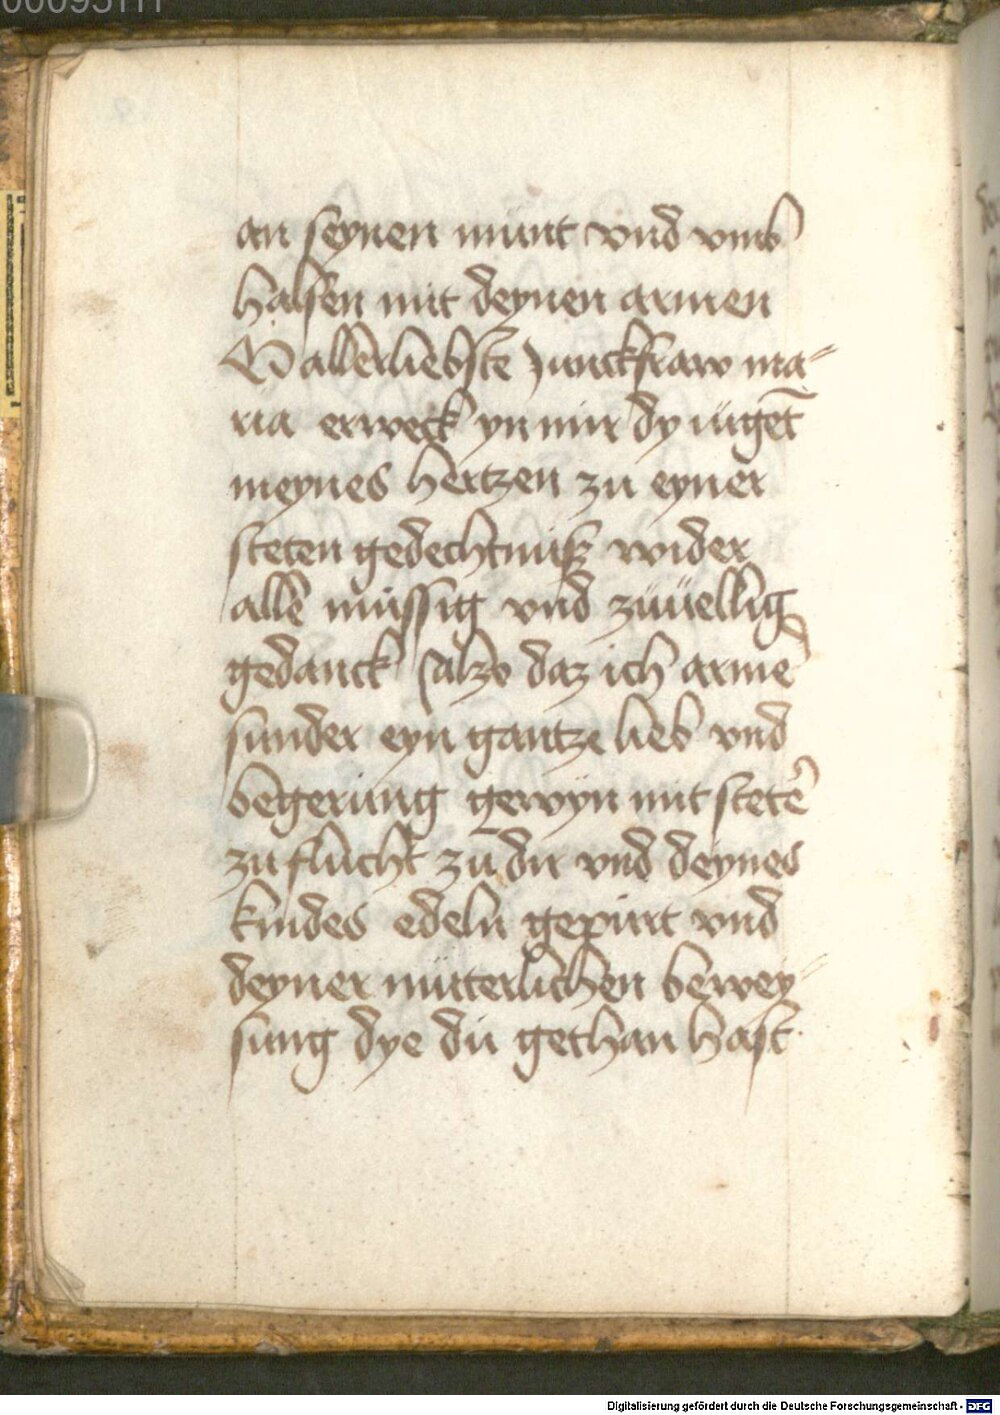 an seynen munt vnd vmb
halsen mit deynen armen
O allerliebste Junckfraw ma-
ria erweck yn mir dy iugēt
meynes hertzen zu eyner
steten gedechtnüß wider
alle müssig vnd züuellig
gedanck Also daz ich arme
sunder eyn gantze lieb vnd
begerung gewyn mit stetē
zu flucht zu dir vnd deynes
kindes edeln gepurt vnd
deyner müterlichen bewey-
sung dye du gethan hast
Digitalisierung gefördert durch die Deutsche Forschungsgemeinschaft - DFG